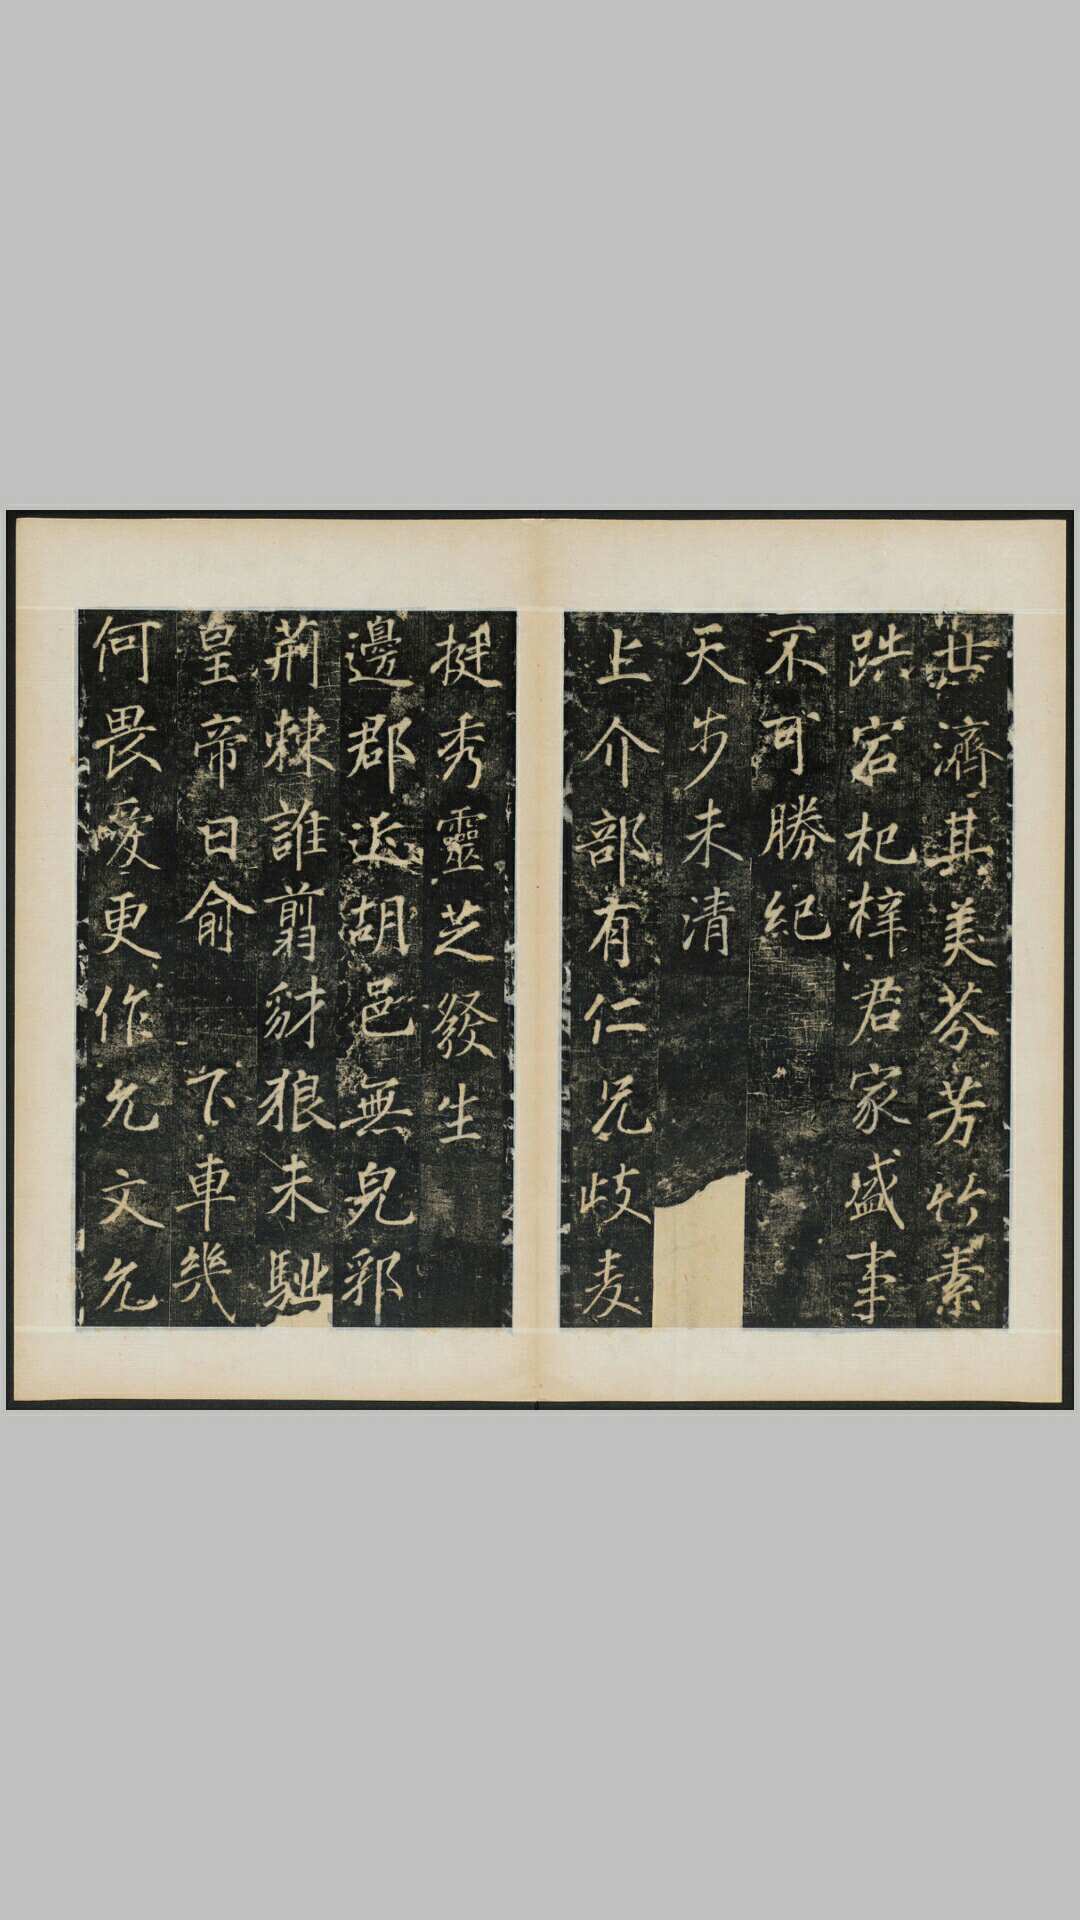 世濟其美芬芳竹素
跣宕杞梓君家盛事
不可勝紀
天步未清
上介部有仁兄歧麦
挺秀靈芝發生
邊郡近胡邑無皃郛
荊棘誰翦豺狼未馳
皇帝曰俞下車幾
何畏愛更作允文允